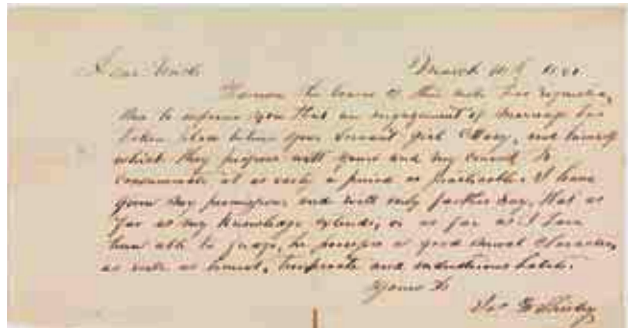 Dear Uncle March 10th
the bearer of this note has requested
me to inform you that an engagement of marriage has
taken place between your servant girl Mary, and himself
which they propose with yours and my consent to
consummate at as early a period as practicable. I have
given my permission and will only further say, that as
far as my knowledge extends, or as far as I have
been able to judge, he possesses a good moral character,
as well as honest, temperate and industrious habits.
Yours &c